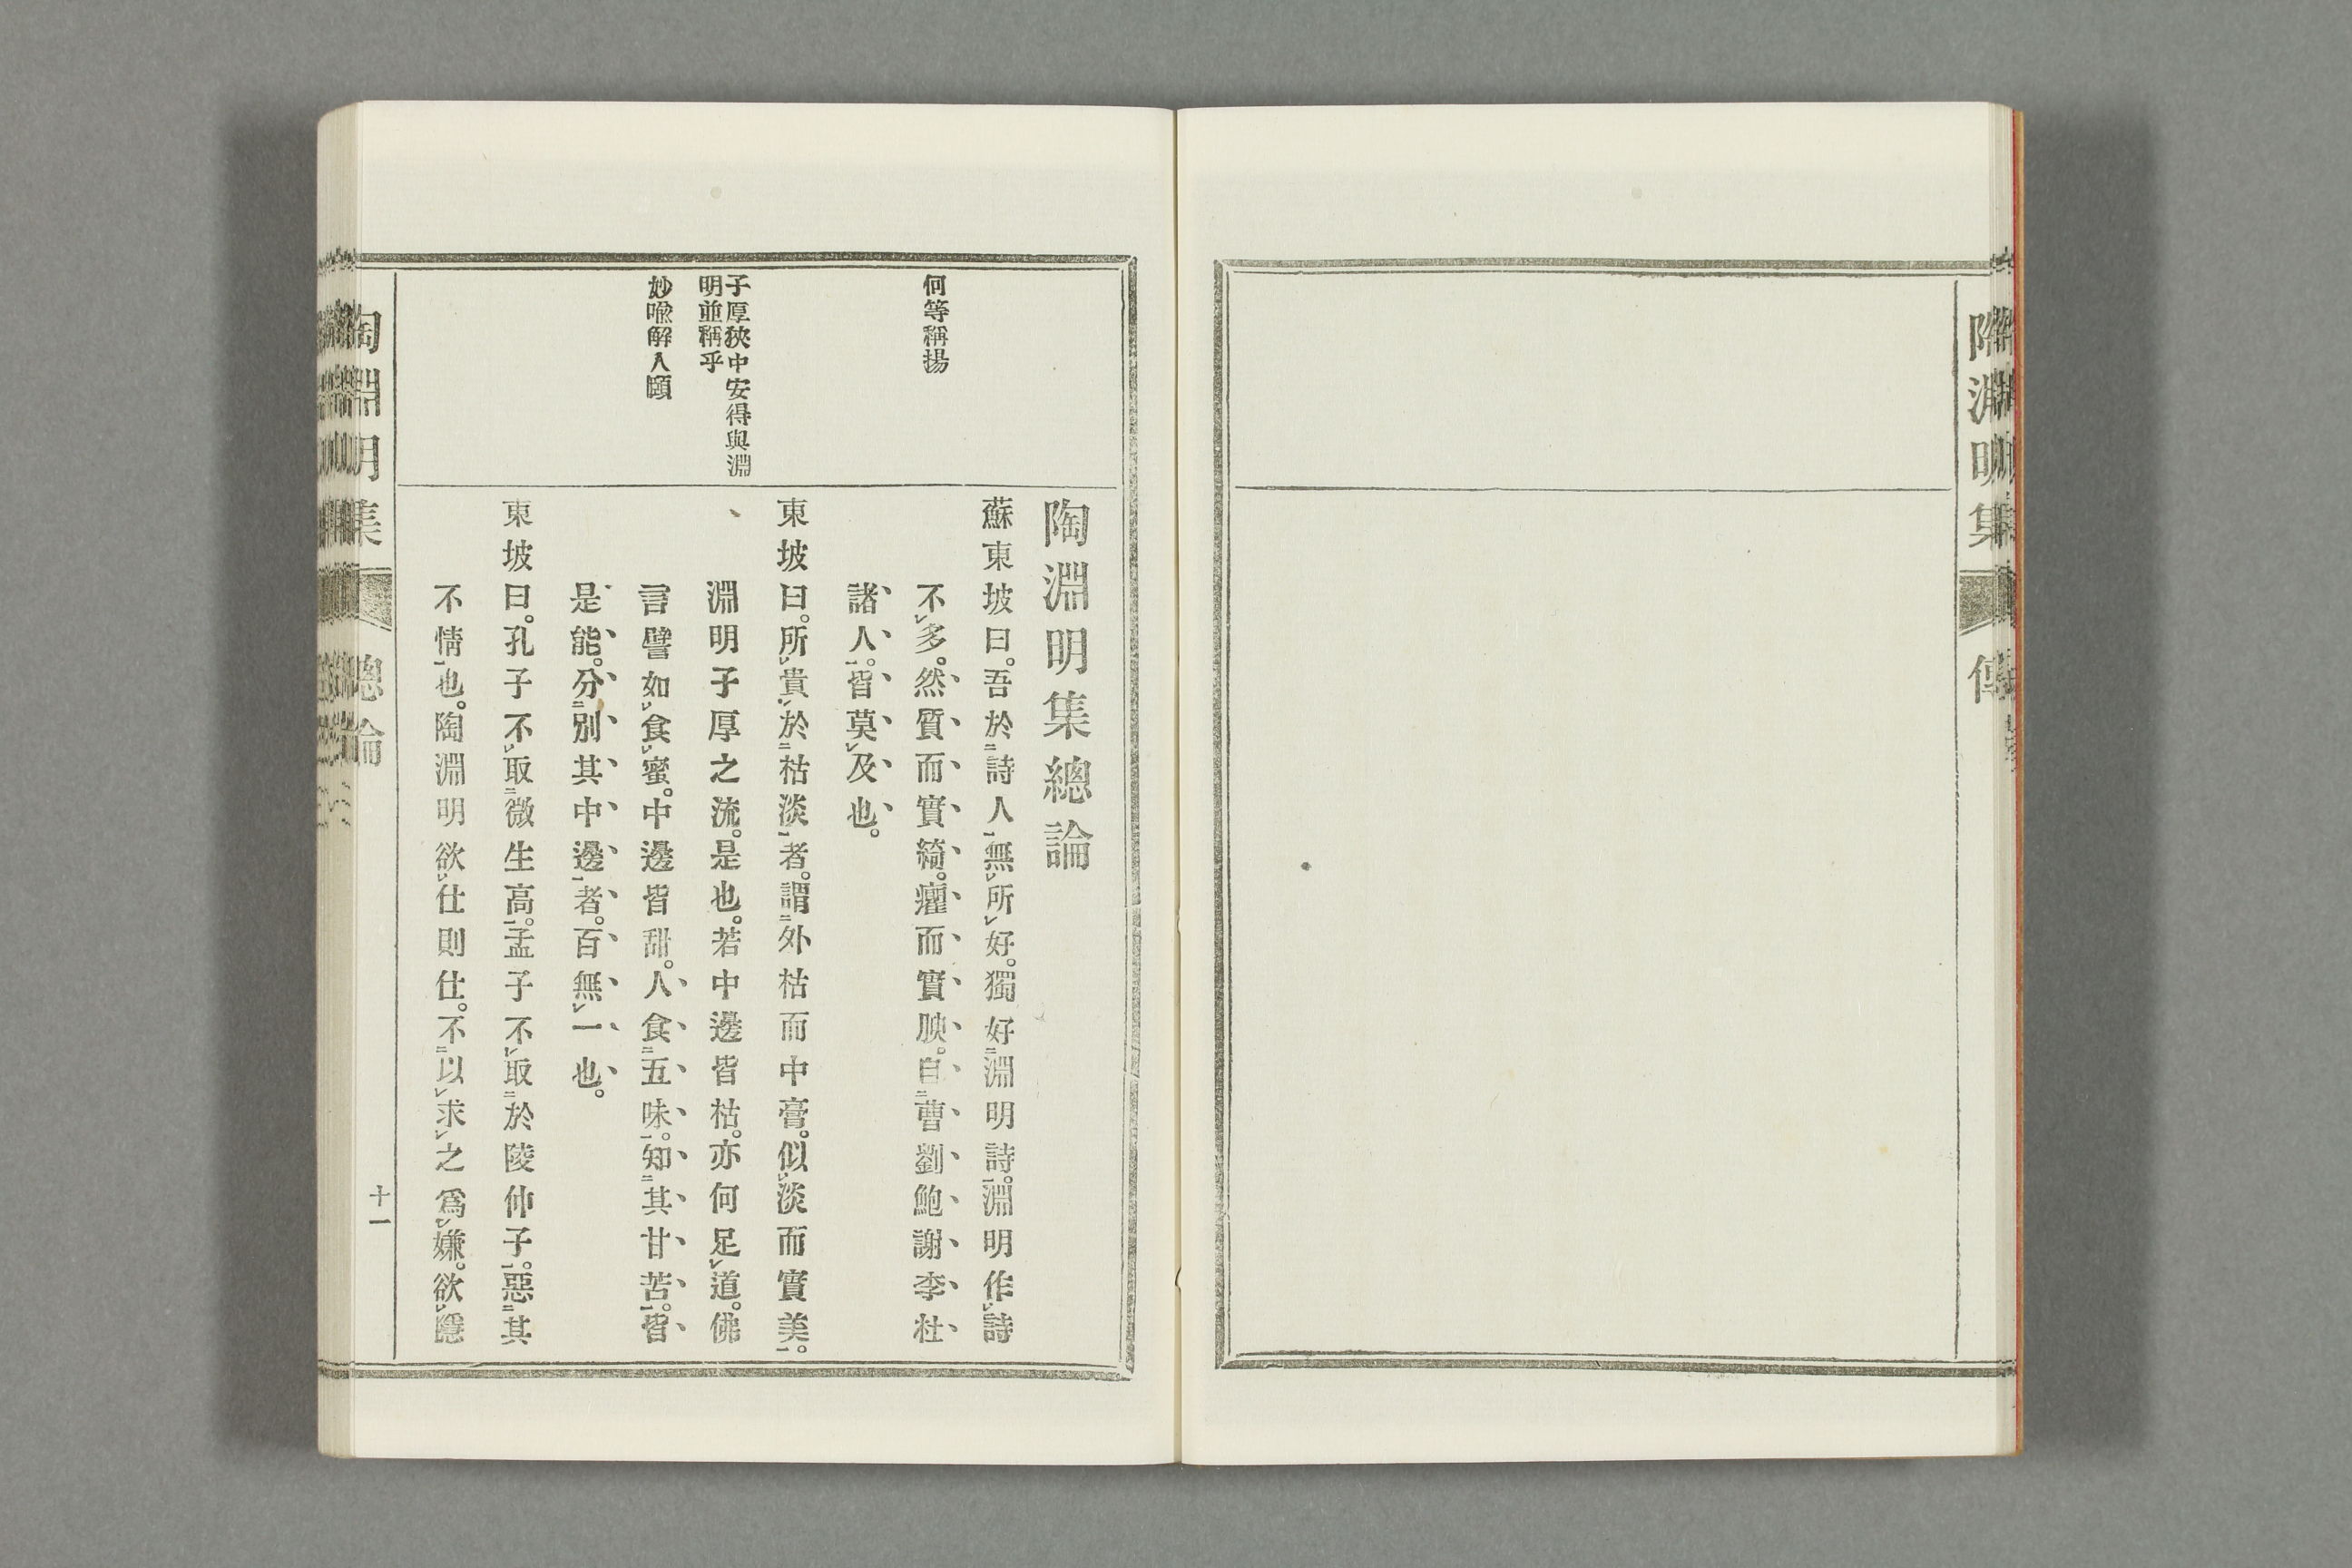 陶淵明集
傳
何等稱揚
子厚狹中安得與淵
明並稱乎
妙喩解人頤
陶淵明集總論
蘇東坡曰。吾於詩人無所好。獨好淵明詩。淵明作詩
不多。然質而實綺。癯而實腴。自曹劉鮑謝李杜
諸人。皆莫及也。
東坡曰。所貴於枯淡者。謂外枯而中膏。似淡而實美。
淵明子厚之流。是也。若中邊皆枯。亦何足道。佛
言譬如食蜜。中邊皆甜。人食五味。知其甘苦。皆
是能。分別其中邊者。百無一也。
東坡曰。孔子不取微生高。孟子不取於陵仲子。惡其
不情也。陶淵明欲仕則仕。不以求之爲嫌。欲隱
陶淵明集
總論
十一